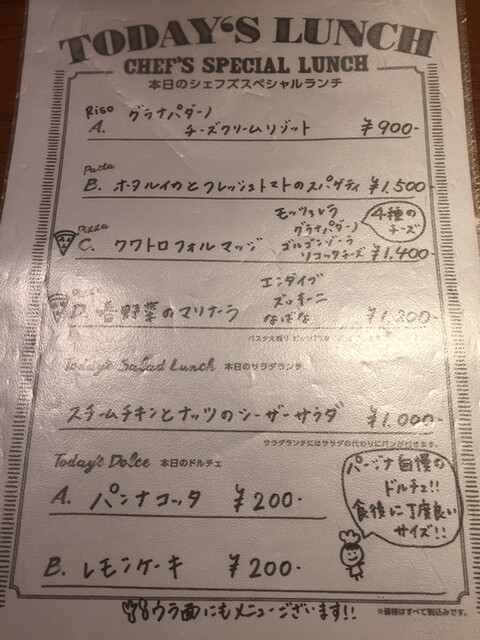 TODAY'S LUNCH
CHEF'S SPECIAL LUNCH
本日のシェフズスペシャルランチ
Riso グラナパダーノ
A. チーズクリームリゾット ¥900-
Pasta
B. ホタルイカとフレッシュトマトのスパゲティ ¥1,500-
Pizza
C. クワトロフォルマッジ
モッツァレラ
グラナパダーノ
ゴルゴンゾーラ
リコッタチーズ
4種の
チーズ
¥1,400-
D. 春野菜のマリナーラ
エンダイブ
ズッキーニ
なばな
¥1,200-
パスタ大盛り
Today's Salad Lunch 本日のサラダランチ
スチームチキンとナッツのシーザーサラダ ¥1,000-
サラダランチにはサラダの代わりにパンが付きます。
Today's Dolce 本日のドルチェ
A. パンナコッタ ¥200-
自慢の
ドルチェ!!
食後に丁度良い
サイズ!!
B. レモンケーキ ¥200-
ウラ面にもメニューございます!!
※価格はすべて税込みです。